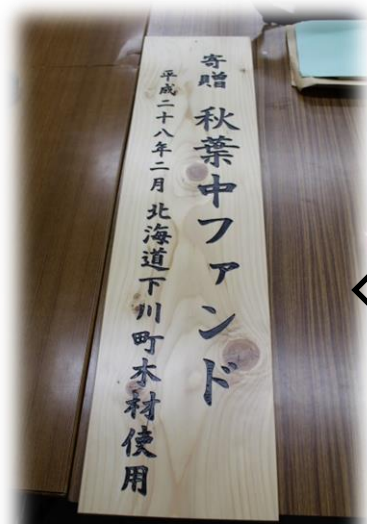 寄贈 秋葉中ファンド
平成二十八年二月 北海道下川町木材使用